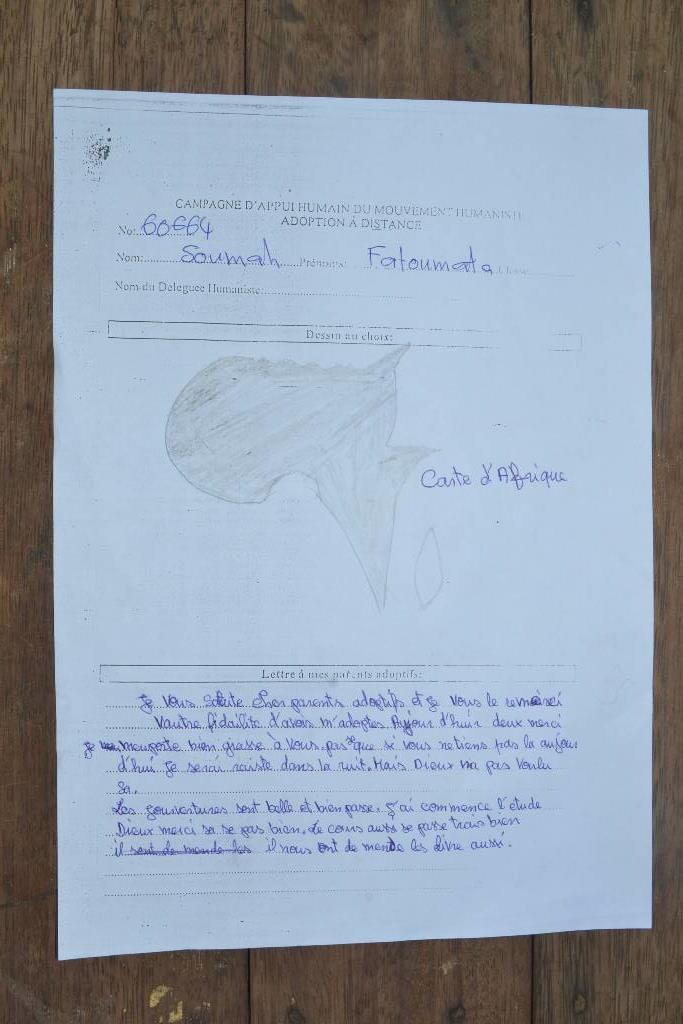 CAMPAGNE D'APPUI HUMAIN DU MOUVEMENT HUMANISTE
ADOPTION À DISTANCE
No: 60664
Nom: Soumah Prénoms: Fatoumata
Nom du Deleguee Humaniste:
Dessin au choix:
Carte d'Afrique
Lettre à mes parents adoptifs:
Je vous Salute Chers parents adoptifs et je vous le remercei
Vautre fidailite d'avois m'adoptes Aujour d'hui deux merci
je meuporte bien grasse à Vous. pasque si vous netiens pas la aujour
d'hui je serai raiste dans la nuit. Mais Dieux na pas Voulu
Sa.
Les gouvertures sont belle et bien passe. J'ai commence l'étude
Dieux merci sa se pas bien. Le cours aussi se passe trais bien
il sont de mande les il nous ont de mande les livre aussi.